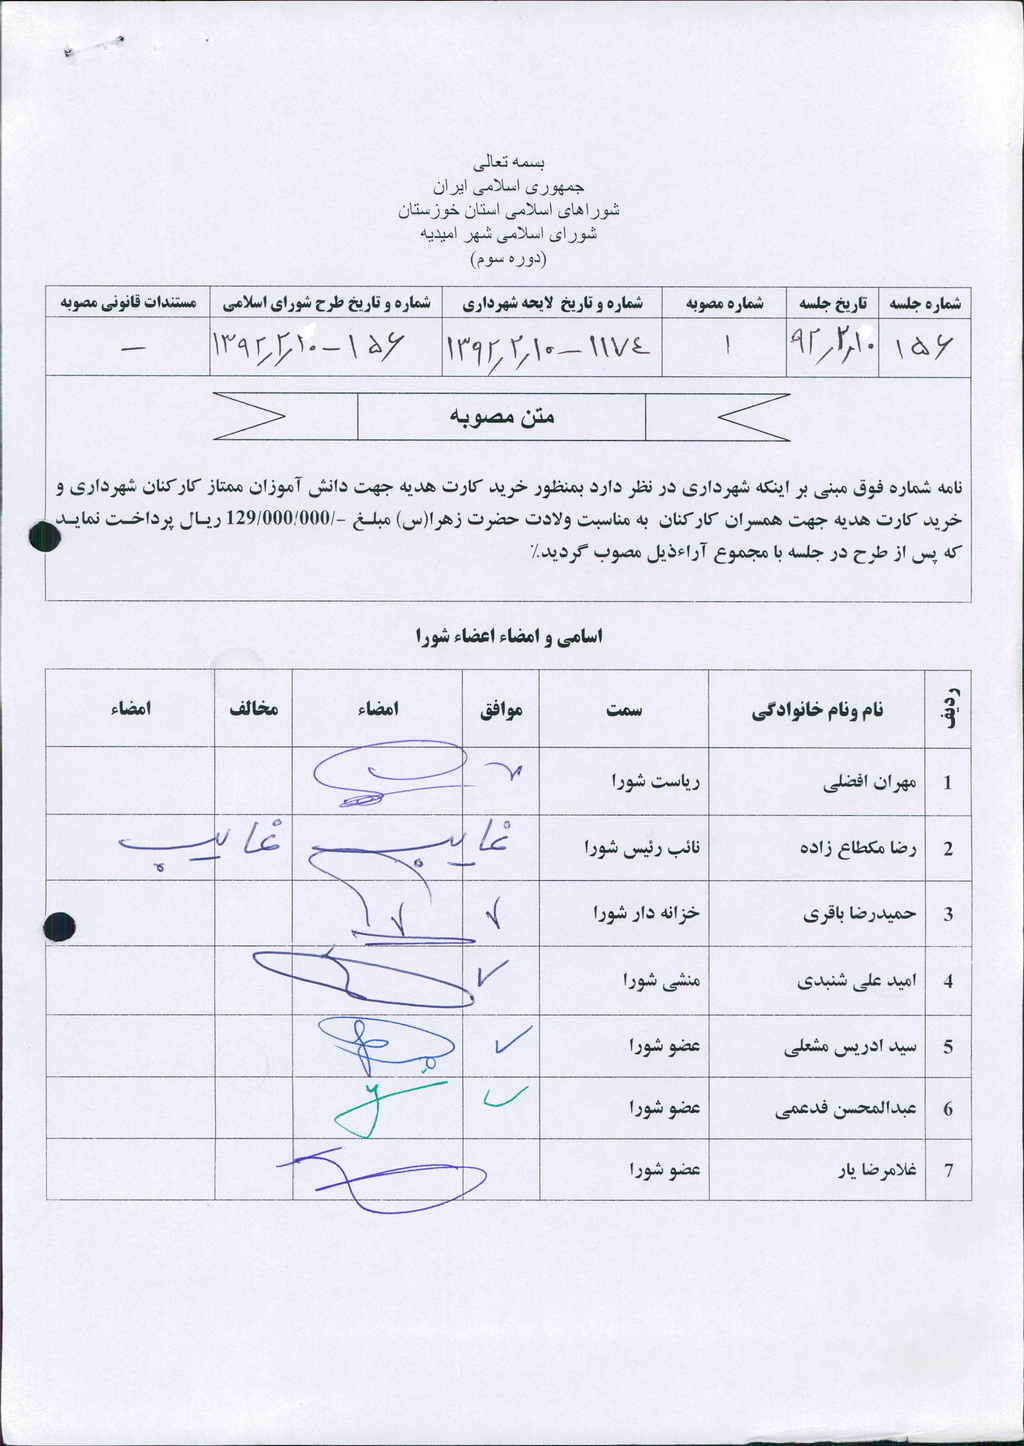 بسمه تعالی
جمهوری اسلامی ایران
شوراهای اسلامی استان خوزستان
شورای اسلامی شهر امیدیه
(دوره سوم)
شماره جلسه تاریخ جلسه شماره مصوبه شماره و تاریخ لایحه شهرداری شماره و تاریخ طرح شورای اسلامی مستندات قانونی مصوبه
۱۵۶ ۹۲٫۲٫۱۰ ۱ ۱۱۷٤ – ۱۳۹۲٫۲٫۱۰ ۱۵۶ – ۱۳۹۲٫۲٫۱۰ –
متن مصوبه
نامه شماره فوق مبنی بر اینکه شهرداری در نظر دارد بمنظور خرید کارت هدیه جهت دانش آموزان ممتاز کارکنان شهرداری و
خرید کارت هدیه جهت همسران کارکنان به مناسبت ولادت حضرت زهرا(س) مبلغ -/129/000/000 ریال پرداخت نماید
که پس از طرح در جلسه با مجموع آراءذیل مصوب گردید.٪
اسامی و امضاء اعضاء شورا
ردیف نام ونام خانوادگی سمت موافق امضاء مخالف امضاء
1 مهران افضلی ریاست شورا
2 رضا مکطاع زاده نائب رئیس شورا غایب غایب
3 حمیدرضا باقری خزانه دار شورا
4 امید علی شنبدی منشی شورا
5 سید ادریس مشعلی عضو شورا
6 عبدالمحسن فدعمی عضو شورا
7 غلامرضا یار عضو شورا